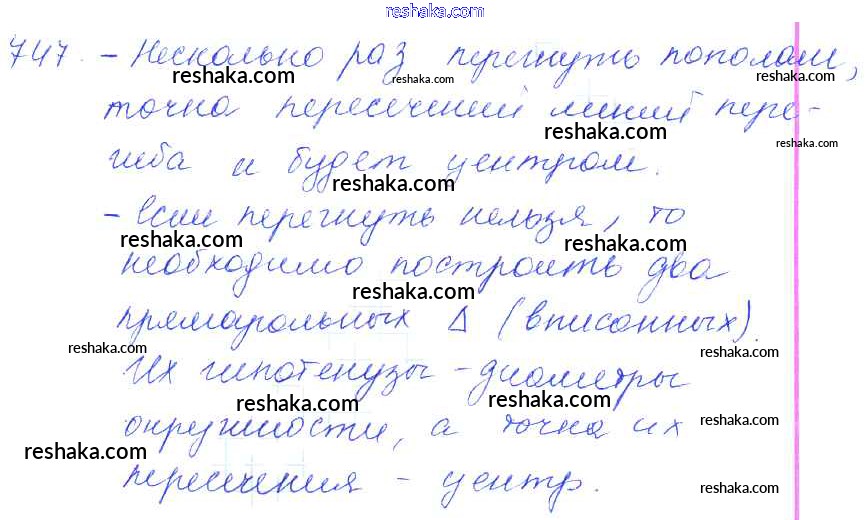 reshaka.com
747. – Несколько раз перегнуть пополам,
reshaka.com reshaka.com reshaka.com
точка пересечений линий пере-
reshaka.com reshaka.com
гиба и будет центром.
reshaka.com
– Если перегнуть нельзя, то
reshaka.com reshaka.com
необходимо построить два
reshaka.com
прямоугольных Δ (вписанных).
reshaka.com reshaka.com
Их гипотенузы – диаметры
reshaka.com reshaka.com
окружности, а точка их
reshaka.com reshaka.com
пересечения – центр.
reshaka.com